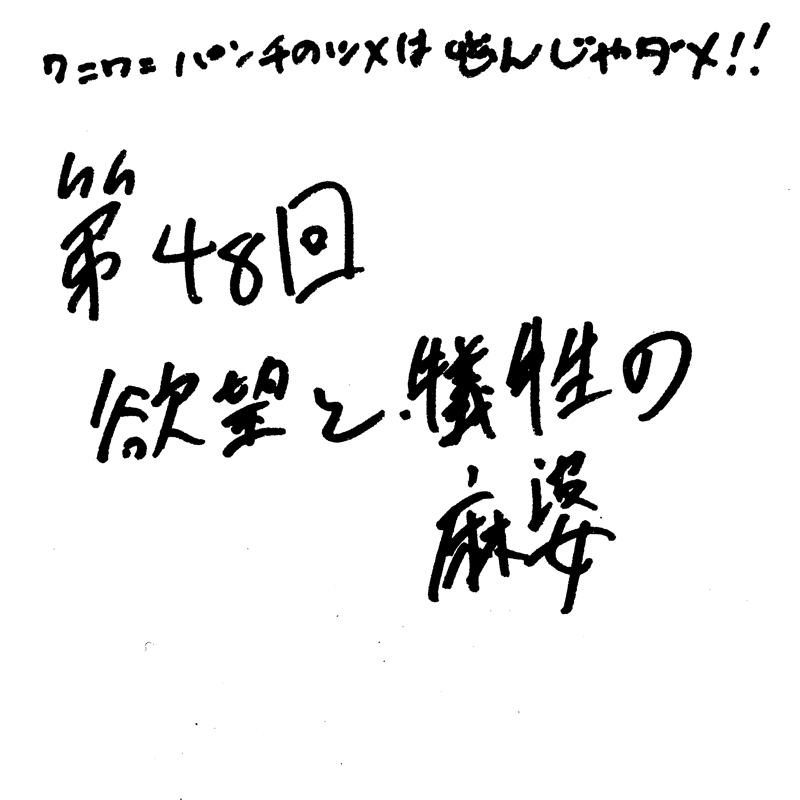 ワニワニパンチのツメは噛んじゃダメ!!
第48回
欲望と犠牲の
麻婆